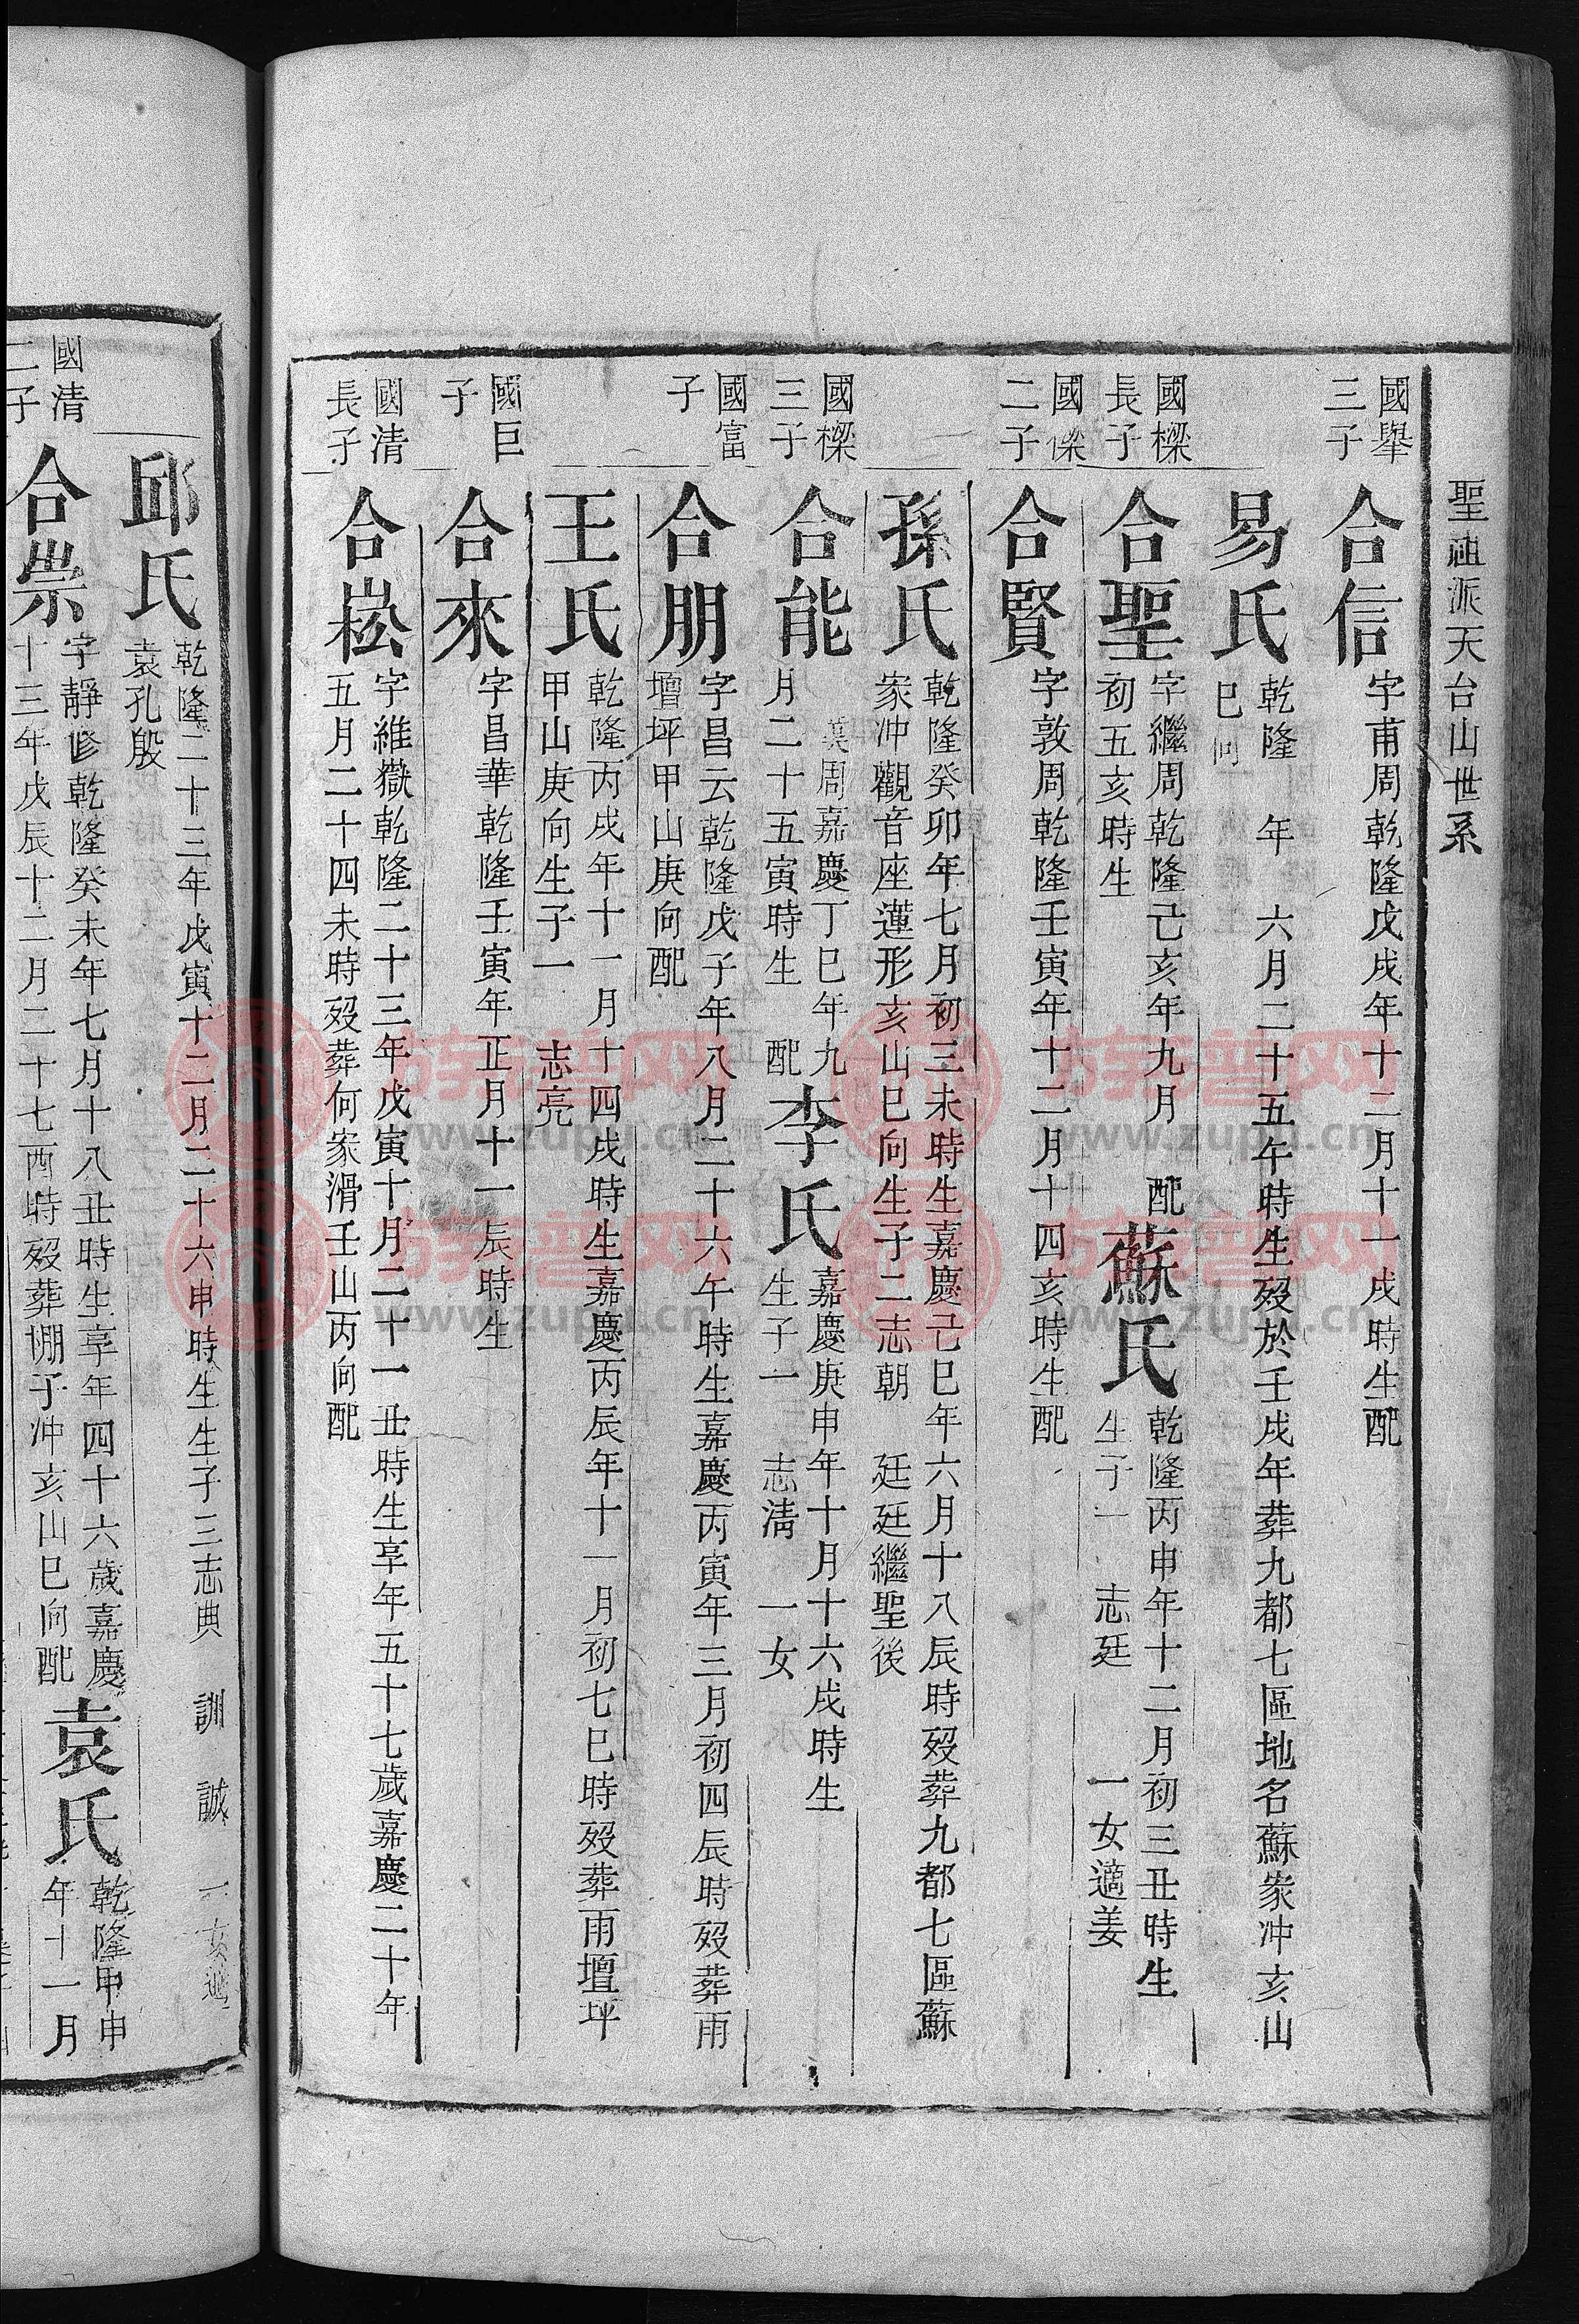 聖祖派天台山世系
國舉
三子
合信
字甫周乾隆戊戌年十二月十一戌時生配
易氏
乾隆 年 六月二十五午時生歿於壬戌年葬九都七區地名蘇家冲亥山
巳向
國樑
長子
合聖
字繼周乾隆己亥年九月
初五亥時生
配
蘇氏
乾隆丙申年十二月初三丑時生
生子一 志廷 一女適姜
國樑
二子
合賢
字敦周乾隆壬寅年十二月十四亥時生配
孫氏
乾隆癸卯年七月初三未時生嘉慶己巳年六月十八辰時歿葬九都七區蘇
家冲觀音座蓮形亥山巳向生子二志朝 廷廷繼聖後
國樑
三子
合能
周嘉慶丁巳年九
月二十五寅時生
配
李氏
嘉慶庚申年十月十六戌時生
生子一 志清 一女
國富
子
合朋
字昌云乾隆戊子年八月二十六午時生嘉慶丙寅年三月初四辰時歿葬雨
壇坪甲山庚向配
王氏
乾隆丙戌年十一月十四戌時生嘉慶丙辰年十一月初七巳時歿葬雨壇坪
甲山庚向生子一 志亮
國巨
子
合來
字昌華乾隆壬寅年正月十一辰時生
國清
長子
合崧
字維嶽乾隆二十三年戊寅十月二十一丑時生享年五十七歲嘉慶二十年
五月二十四未時歿葬何家滑壬山丙向配
邱氏
乾隆二十三年戊寅十二月二十六申時生生子三志典 訓 誠 一女適
袁孔殷
國清
二子
合崇
字靜修乾隆癸未年七月十八丑時生享年四十六歲嘉慶
十三年戊辰十二月二十七酉時歿葬棚子冲亥山巳向配
袁氏
乾隆甲申
年十一月
族普网
www.zupu.cn
族普网
www.zupu.cn
族普网
www.zupu.cn
族普网
www.zupu.cn